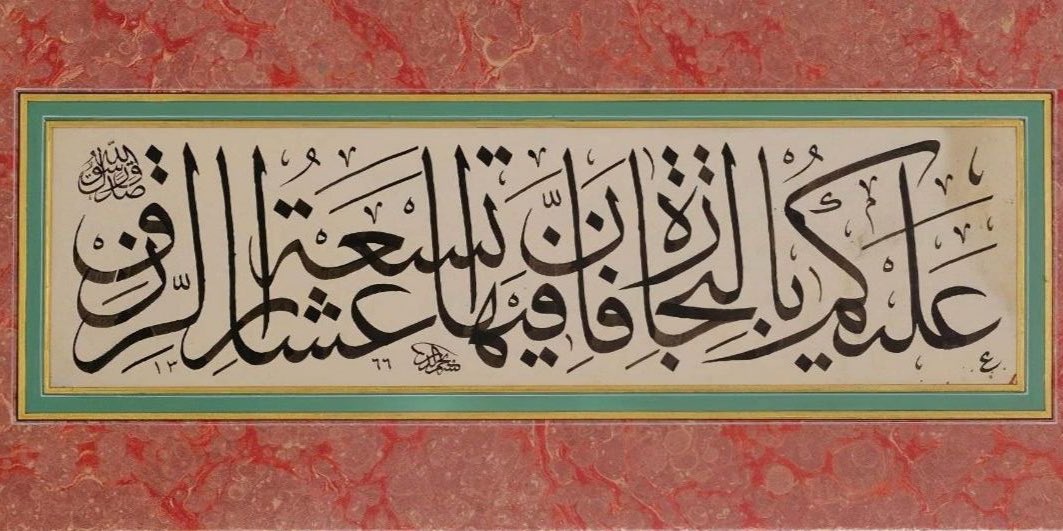 عليكم بالتجارة فان فيها تسعة اعشار الرزق
صدق رسول الله
١٣٦٦